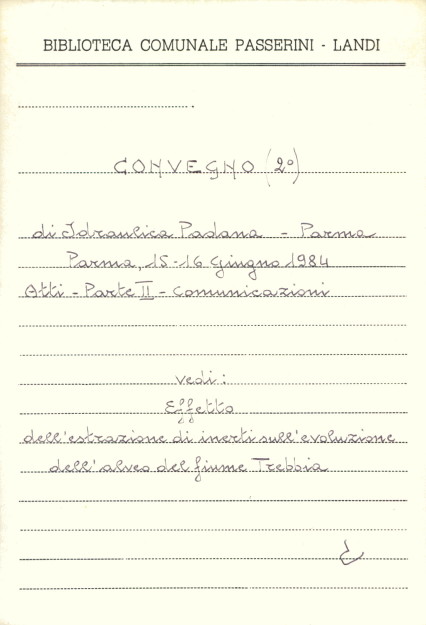 BIBLIOTECA COMUNALE PASSERINI - LANDI
CONVEGNO (2°)
di Idraulica Padana - Parma
Parma, 15-16 Giugno 1984
Atti - Parte II - Comunicazioni
vedi:
Effetto
dell'estrazione di inerti sull'evoluzione
dell'alveo del fiume Trebbia